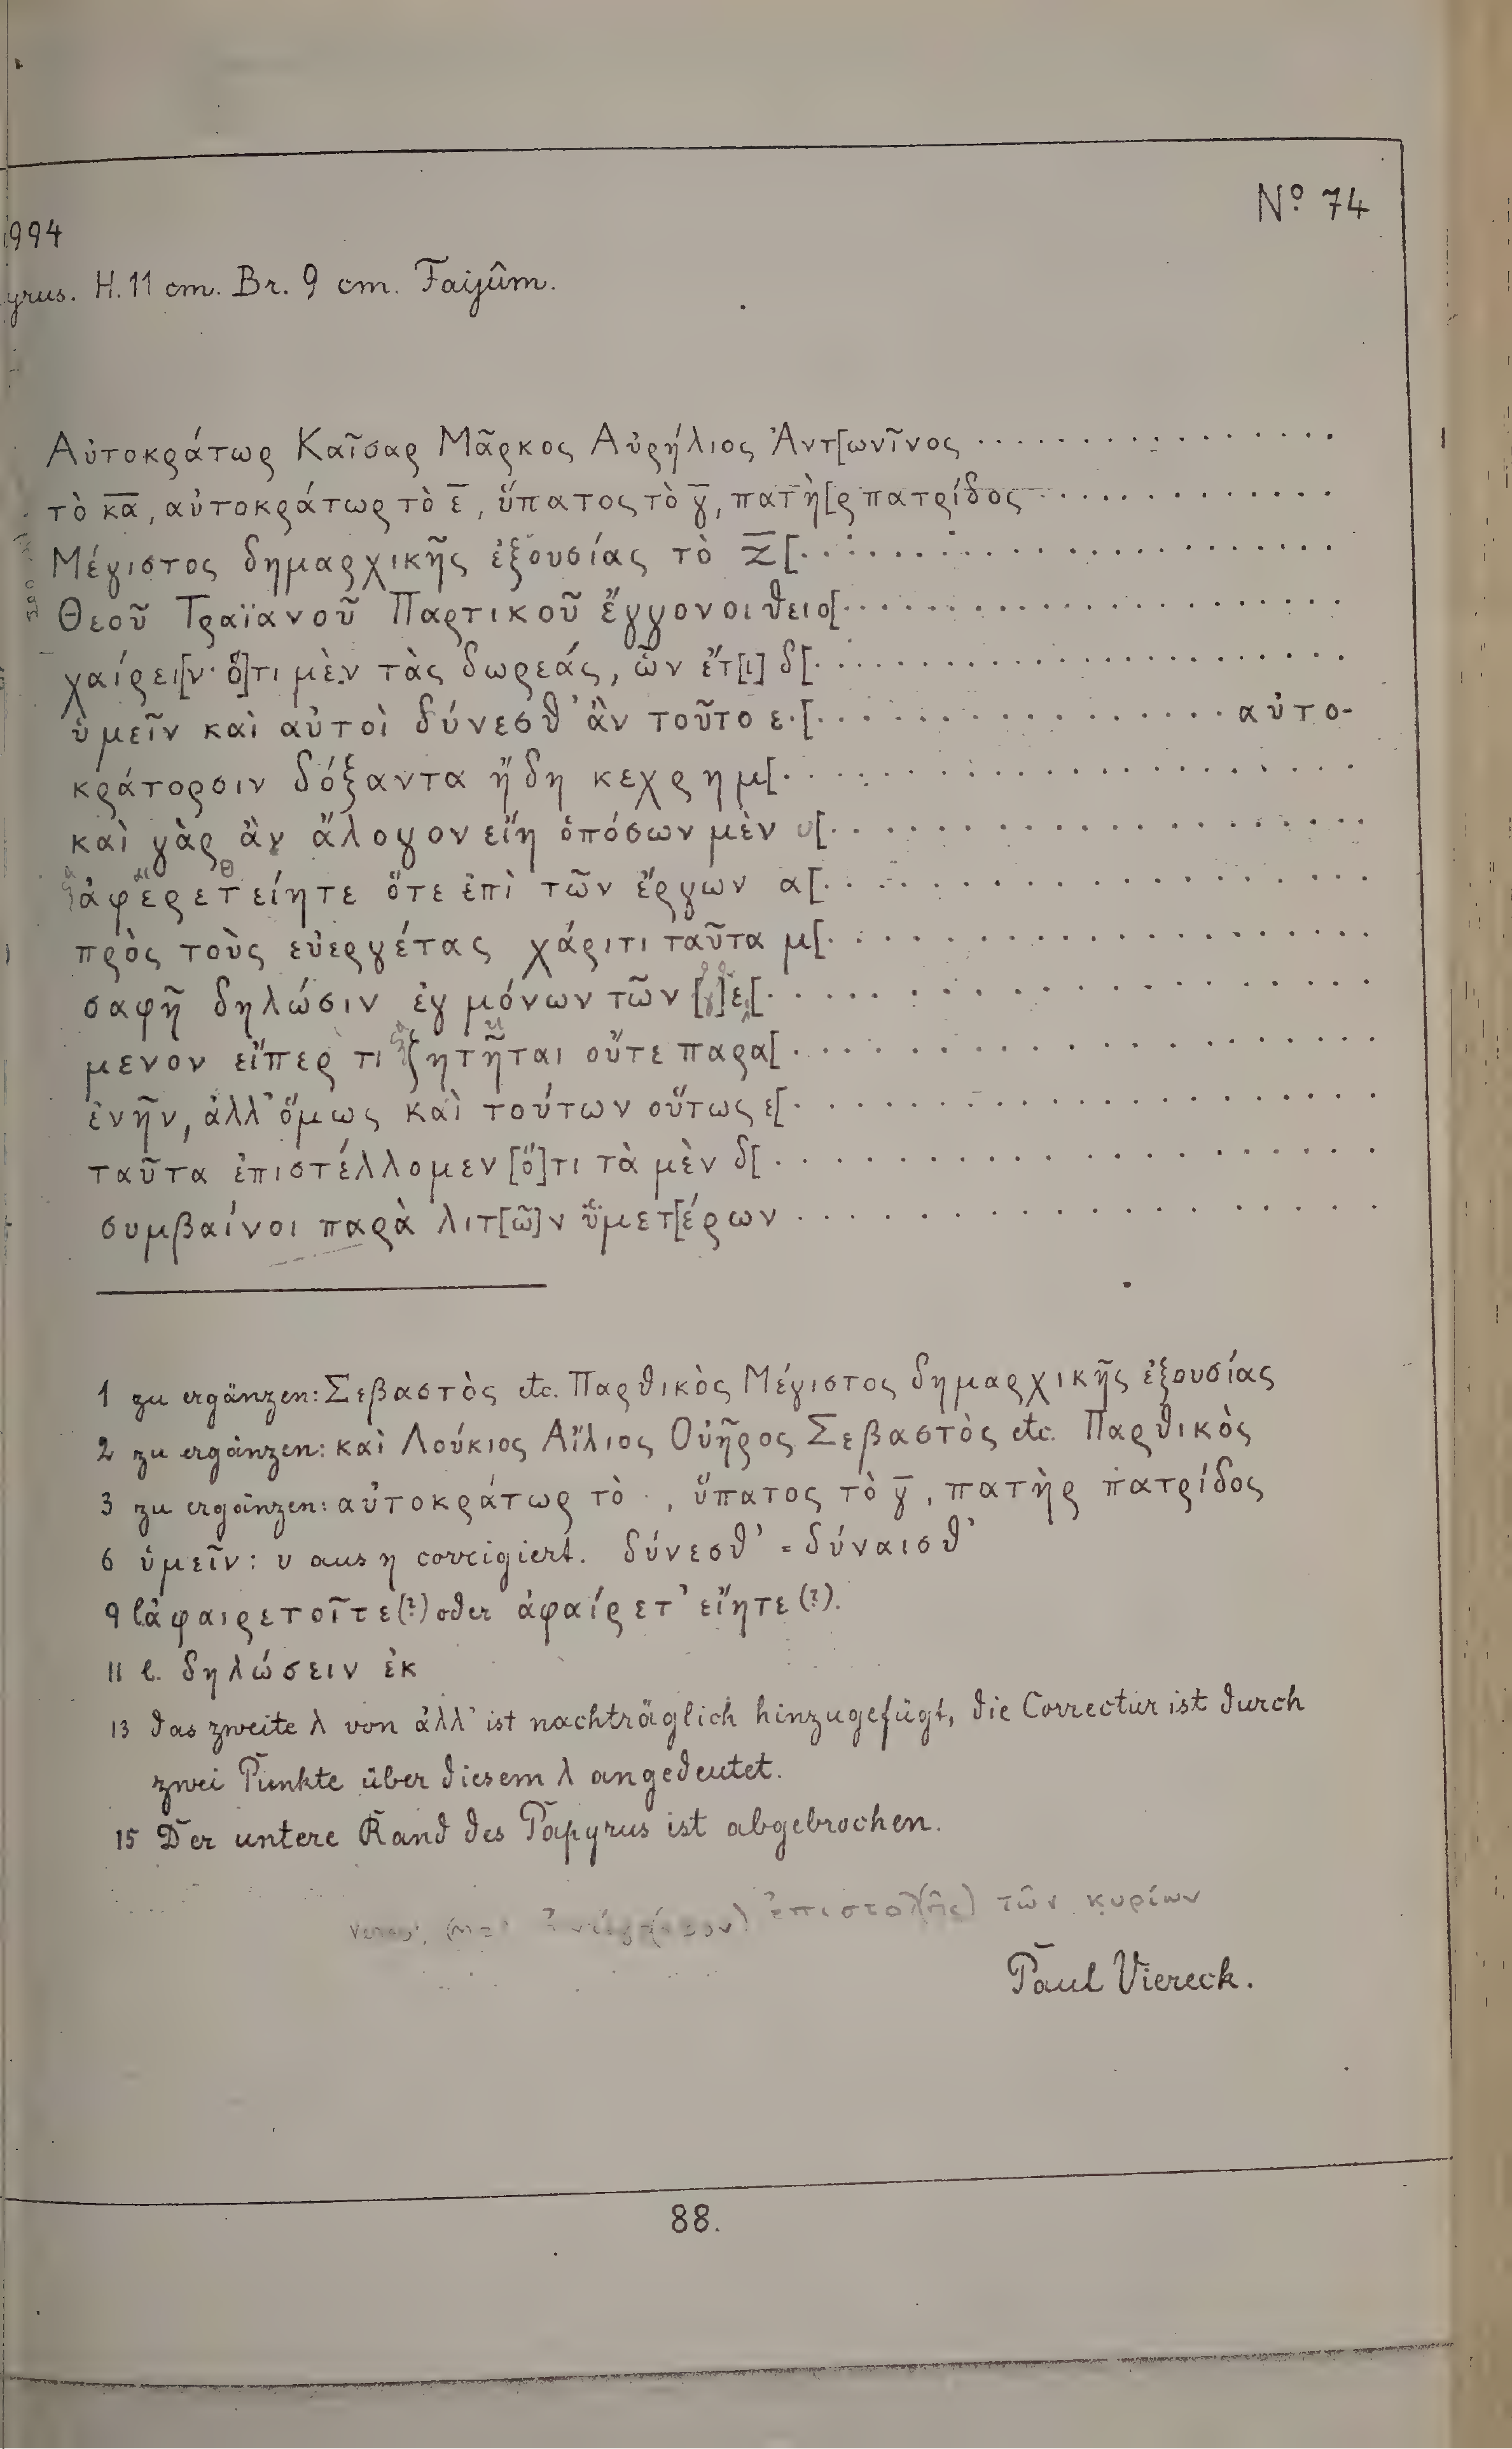 Nº 74
1994
yrus. H. 11 cm. Br. 9 cm. Faijûm.
Αὐτοκράτωρ Καῖσαρ Μᾶρκος Αὐρήλιος Ἀντ[ωνῖνος ................
τὸ κ̅α̅, αὐτοκράτωρ τὸ ε̅, ὕπατος τὸ γ̅, πατὴ[ρ πατρίδος ..............
Μέγιστος δημαρχικῆς ἐξουσίας τὸ Ζ̅[....................
Θεοῦ Τραϊανοῦ Παρτικοῦ ἔγγονοι θειο[....................
χαίρει[ν· ὅ]τι μὲν τὰς δωρεάς, ὧν ἔτ[ι] δ[....................
ὑμεῖν καὶ αὐτοὶ δύνεσθ' ἂν τοῦτο ε·[................ αὐτο-
κράτορσιν δόξαντα ἤδη κεχρημ[....................
καὶ γὰρ ἂν ἄλογον εἴη ὁπόσων μὲν υ[....................
ἀφερετείητε ὅτε ἐπὶ τῶν ἔργων α[....................
πρὸς τοὺς εὐεργέτας χάριτι ταῦτα μ[....................
σαφῆ δηλώσιν ἐγ μόνων τῶν [.]ε[....................
μενον εἴπερ τι ζητῆται οὔτε παρα[....................
ἐνῆν, ἀλλ' ὅμως καὶ τούτων οὕτως ε[....................
ταῦτα ἐπιστέλλομεν [ὅ]τι τὰ μὲν δ[....................
συμβαίνοι παρὰ λιτ[ῶ]ν ὑ̈μετ[έρων ....................
1 zu ergänzen: Σεβαστὸς etc. Παρθικὸς Μέγιστος δημαρχικῆς ἐξουσίας
2 zu ergänzen: καὶ Λούκιος Αἴλιος Οὐῆρος Σεβαστὸς etc. Παρθικὸς
3 zu ergänzen: αὐτοκράτωρ τὸ ·, ὕπατος τὸ γ̅, πατὴρ πατρίδος
6 ὑμεῖν: υ aus η corrigiert. δύνεσθ' = δύναισθ'
9 l ἀφαιρετοῖτε (?) oder ἀφαίρετ' εἴητε (?).
11 l. δηλώσειν ἐκ
13 das zweite λ von ἀλλ' ist nachträglich hinzugefügt, die Correctur ist durch
zwei Punkte über diesem λ angedeutet.
15 Der untere Rand des Papyrus ist abgebrochen.
ἐπιστολ(ῆς) τῶν κυρίων
Paul Viereck.
88.